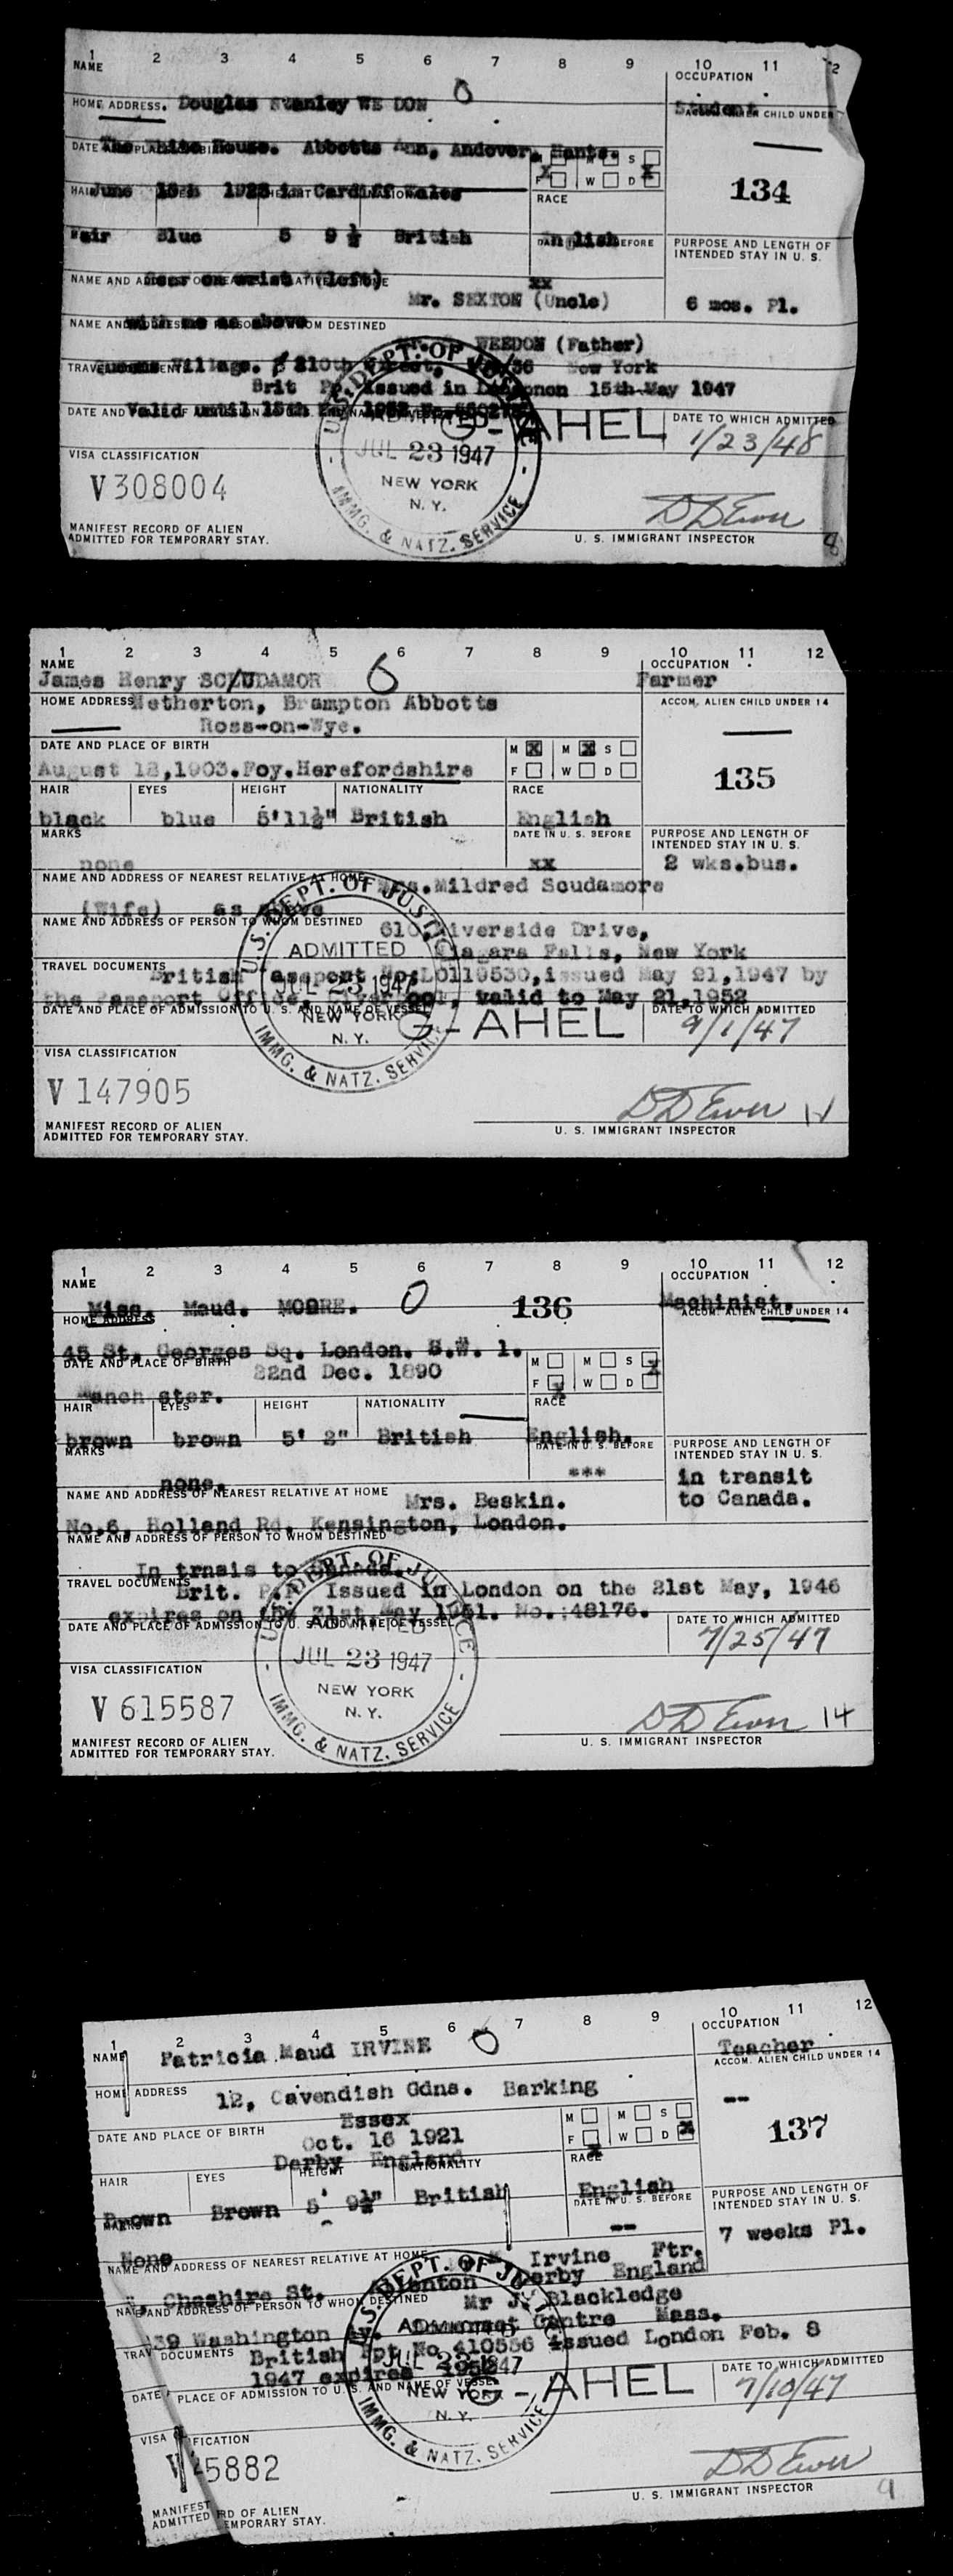 1 2 3 4 5 6 7 8 9 10 11 12
NAME
OCCUPATION
HOME ADDRESS. Douglas Stanley WE DON
Student
ACCOM. ALIEN CHILD UNDER
The White House. Abbotts Ann, Andover. Hants.
S
F W D
134
June 1928 in Cardiff Wales
RACE
Fair Blue 5 9½ British
English
PURPOSE AND LENGTH OF
INTENDED STAY IN U. S.
Scar on wrist (left)
xx
Mr. SEXTON (Uncle)
6 mos. Pl.
with me as above
WEEDON (Father)
Queens Village. 210th New York
Brit Pp. issued in 15th May 1947
Valid until
G-AHEL
DATE TO WHICH ADMITTED
1/23/48
U. S. DEPT. OF JUSTICE
ADMITTED
JUL 23 1947
NEW YORK
N. Y.
IMMG. & NATZ. SERVICE
VISA CLASSIFICATION
V 308004
MANIFEST RECORD OF ALIEN
ADMITTED FOR TEMPORARY STAY.
U. S. IMMIGRANT INSPECTOR
1 2 3 4 5 6 7 8 9 10 11 12
NAME
OCCUPATION
James Henry SC/UDAMOR 6
Farmer
HOME ADDRESS Netherton, Brampton Abbotts
ACCOM. ALIEN CHILD UNDER 14
Ross-on-Wye.
DATE AND PLACE OF BIRTH
M M S
F W D
135
August 12,1903.Foy.Herefordshire
HAIR EYES HEIGHT NATIONALITY RACE
black blue 5'11½" British English
MARKS
DATE IN U. S. BEFORE
PURPOSE AND LENGTH OF
INTENDED STAY IN U. S.
none
xx
2 wks.bus.
NAME AND ADDRESS OF NEAREST RELATIVE AT HOME
Mrs.Mildred Scudamore
(Wife) as above
NAME AND ADDRESS OF PERSON TO WHOM DESTINED
610 Riverside Drive,
Niagara Falls, New York
TRAVEL DOCUMENTS
British Passport No.L0119530,issued May 21,1947 by
the Passport Office, Liverpool, valid to May 21,1952
DATE AND PLACE OF ADMISSION TO U. S. AND NAME OF VESSEL
G-AHEL
DATE TO WHICH ADMITTED
9/1/47
U. S. DEPT. OF JUSTICE
ADMITTED
JUL 23 1947
NEW YORK
N. Y.
IMMG. & NATZ. SERVICE
VISA CLASSIFICATION
V 147905
MANIFEST RECORD OF ALIEN
ADMITTED FOR TEMPORARY STAY.
U. S. IMMIGRANT INSPECTOR
1 2 3 4 5 6 7 8 9 10 11 12
NAME
OCCUPATION
Miss. Maud. MOORE. 0 136
Machinist.
HOME ADDRESS
ACCOM. ALIEN CHILD UNDER 14
45 St. Georges Sq. London. S.W. 1.
DATE AND PLACE OF BIRTH
22nd Dec. 1890
M M S
F W D
Manch ster.
HAIR EYES HEIGHT NATIONALITY RACE
brown brown 5' 2" British English.
MARKS
DATE IN U. S. BEFORE
PURPOSE AND LENGTH OF
INTENDED STAY IN U. S.
none.
***
in transit
to Canada.
NAME AND ADDRESS OF NEAREST RELATIVE AT HOME
Mrs. Beskin.
No.6, Holland Rd. Kensington, London.
NAME AND ADDRESS OF PERSON TO WHOM DESTINED
In trnais to Canada.
TRAVEL DOCUMENTS
Brit. P.P. Issued in London on the 21st May, 1946
expires on the 21st May 1951. No.:48176.
DATE AND PLACE OF ADMISSION TO U. S. AND NAME OF VESSEL
DATE TO WHICH ADMITTED
7/25/47
U. S. DEPT. OF JUSTICE
ADMITTED
JUL 23 1947
NEW YORK
N. Y.
IMMG. & NATZ. SERVICE
VISA CLASSIFICATION
V 615587
14
MANIFEST RECORD OF ALIEN
ADMITTED FOR TEMPORARY STAY.
U. S. IMMIGRANT INSPECTOR
1 2 3 4 5 6 7 8 9 10 11 12
NAME
OCCUPATION
Patricia Maud IRVINE 0
Teacher
ACCOM. ALIEN CHILD UNDER 14
HOME ADDRESS
12, Cavendish Gdns. Barking
--
Essex
DATE AND PLACE OF BIRTH
Oct. 16 1921
M M S
F W D
137
Derby England
HAIR EYES HEIGHT NATIONALITY RACE
Brown Brown 5' 9½" British English
MARKS
DATE IN U. S. BEFORE
PURPOSE AND LENGTH OF
INTENDED STAY IN U. S.
None
--
7 weeks Pl.
NAME AND ADDRESS OF NEAREST RELATIVE AT HOME
Irvine Ftr.
Cheshire St. Derby England
NAME AND ADDRESS OF PERSON TO WHOM DESTINED
Mr J. Blackledge
39 Washington Centre Mass.
TRAV DOCUMENTS
British Ppt No 410556 issued London Feb. 8
1947 expires 1952
DATE PLACE OF ADMISSION TO U. S. AND NAME OF VESSEL
G-AHEL
DATE TO WHICH ADMITTED
9/10/47
U. S. DEPT. OF JUSTICE
NEW YORK
N. Y.
IMMG. & NATZ. SERVICE
VISA FICATION
5882
MANIFEST RD OF ALIEN
ADMITTED EMPORARY STAY.
U. S. IMMIGRANT INSPECTOR
9